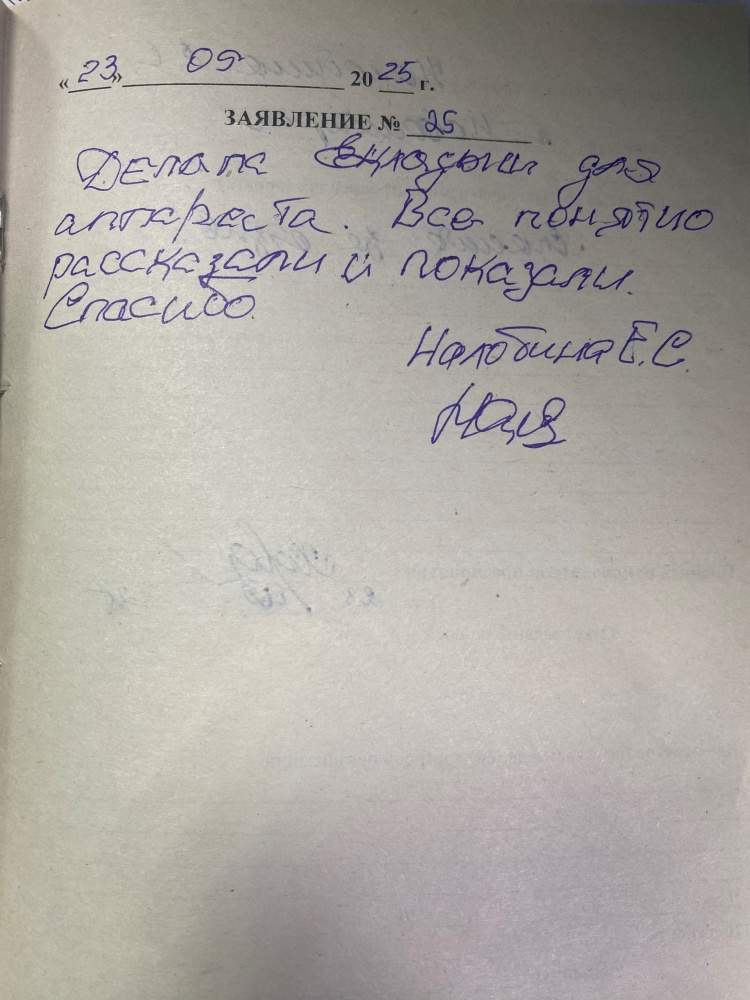 «23» 09 2025 г.
ЗАЯВЛЕНИЕ № 25
Делала вкладыши для
аппкреста. Все понятно
рассказали и показали.
Спасибо.
Налобина Е.С.